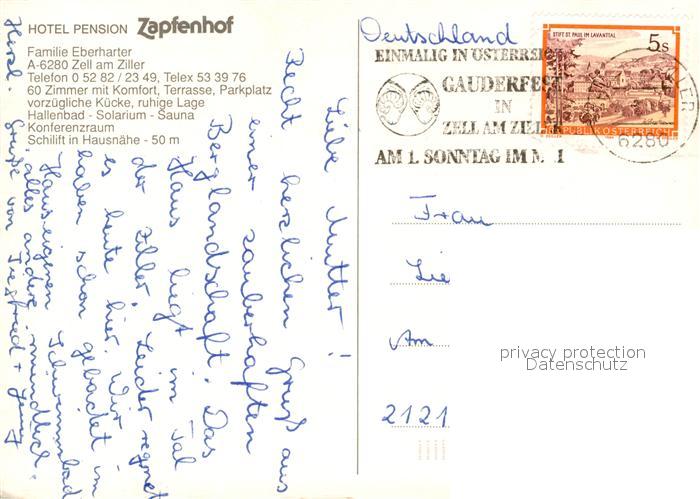 HOTEL PENSION Zapfenhof
Familie Eberharter
A-6280 Zell am Ziller
Telefon 0 52 82 / 23 49, Telex 53 39 76
60 Zimmer mit Komfort, Terrasse, Parkplatz
vorzügliche Kücke, ruhige Lage
Hallenbad - Solarium - Sauna
Konferenzraum
Schilift in Hausnähe - 50 m
Liebe Mutter!
Recht herzlichen Gruß aus
einer zauberhaften
Berglandschaft. Das
Haus liegt im Tal
der Ziller. Leider regnet
es heute hier. Wir
haben schon gebadet im
Hauseigenen Schwimmbad
alles andere mündlich.
Herzl. Grüße von Siegfried + Jenny
Deutschland
EINMALIG IN ÖSTERREICH
GAUDERFEST
IN
ZELL AM ZILLER
AM 1. SONNTAG IM M I
STIFT ST. PAUL IM LAVANTTAL
5 S
REPUBLIK ÖSTERREICH
6280
Frau
Lie
Am
2121
privacy protection
Datenschutz